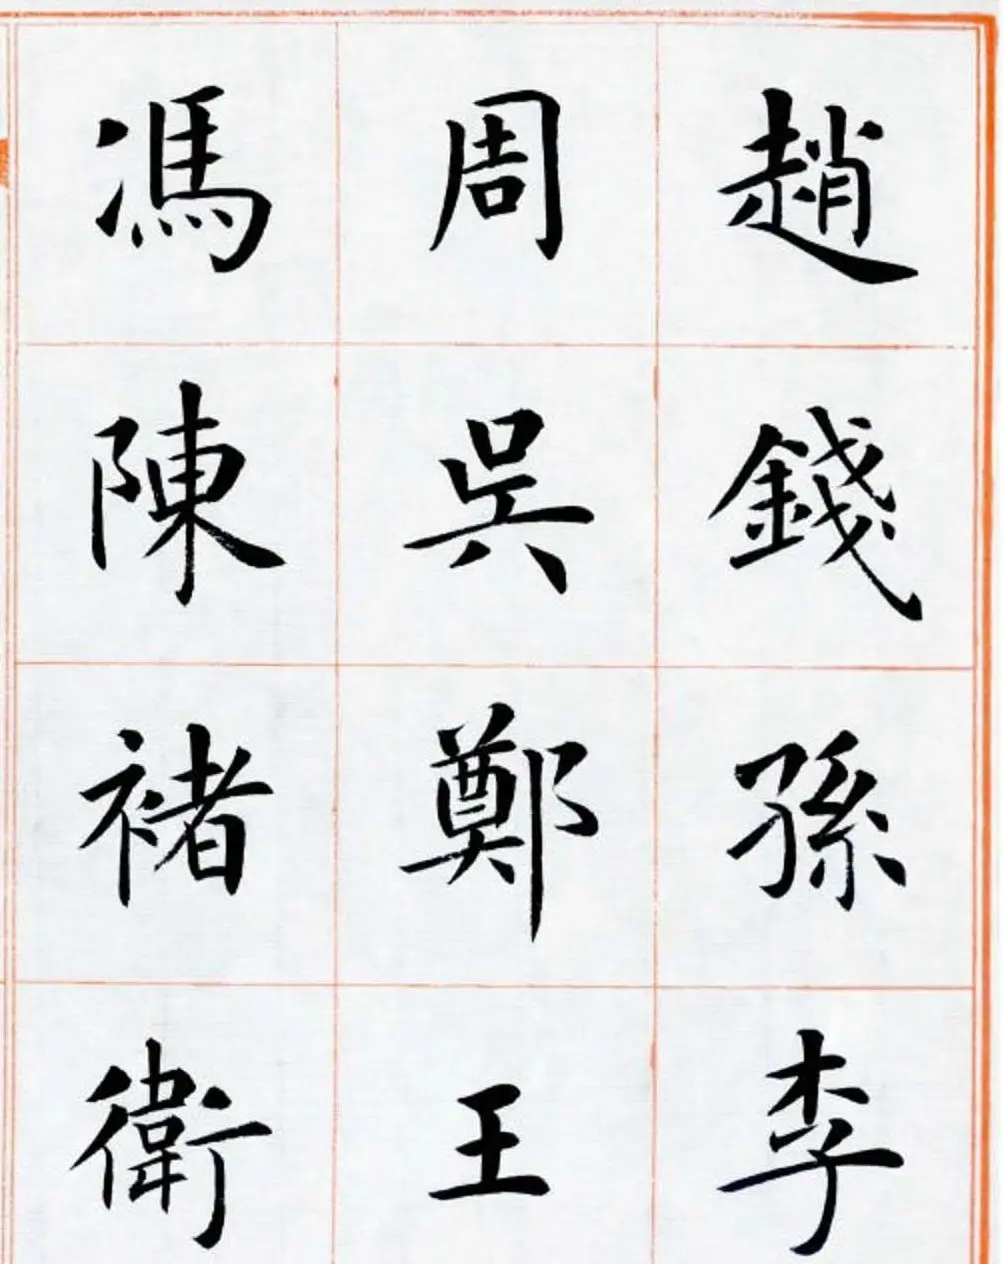 趙錢孫李
周吳鄭王
馮陳褚衛